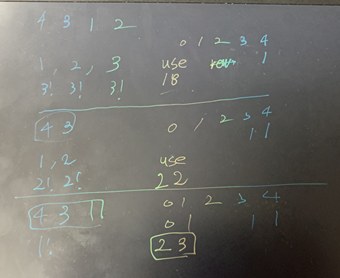 4 3 1 2
0 1 2 3 4
1, 2, 3 use 1
3! 3! 3! 18
4 3 0 1 2 3 4
1 1
1, 2 use
2! 2! 22
4 3 1 0 1 2 3 4
0 1 1 1
1! 23